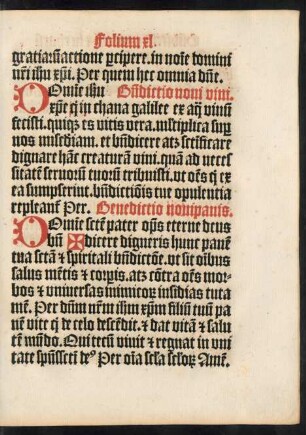 Folium xl.
gratiarū actione ꝑcipere. in noīe domini
nr̄i ihū xp̄i. Per quem hec omnia dn̄e.
Domine ihū Bn̄dictio noui vini.
xp̄e qͥ in chana galilee ex aq̄ vinū
fecisti. quiqꝫ es vitis vera. mltiplica suꝑ
nos mīsc̄diam. et bn̄dicere atqꝫ sc̄tificare
dignare hanc creaturā vini. quā ad necessitatē
seruoꝝ tuoꝝ tribuisti. vt oēs qͥ ex
ea sumpserint. bn̄dictiōis tue opulentia
repleant̄ Per. Benedictio noui panis.
Domine sc̄tē pater oīp̄s eterne deus
bn̄ ✠ dicere digneris hunc panē
tua sctā & spirituali bn̄dictōe. vt sit oībus
salus mētis & corꝑis. atqꝫ cōtra oēs morbos
& vniuersas inimicoꝝ insidias tutamē.
Per dn̄m nr̄m ihm xp̄m filiū tuū panē
viuū qͥ de celo descēdit. & dat vitā & salutē
mūdo. Qui tecū viuit & regnat in vnitate
sp̄ussctī deꝰ Per oīa scl̄a scl̄oꝝ Amē.